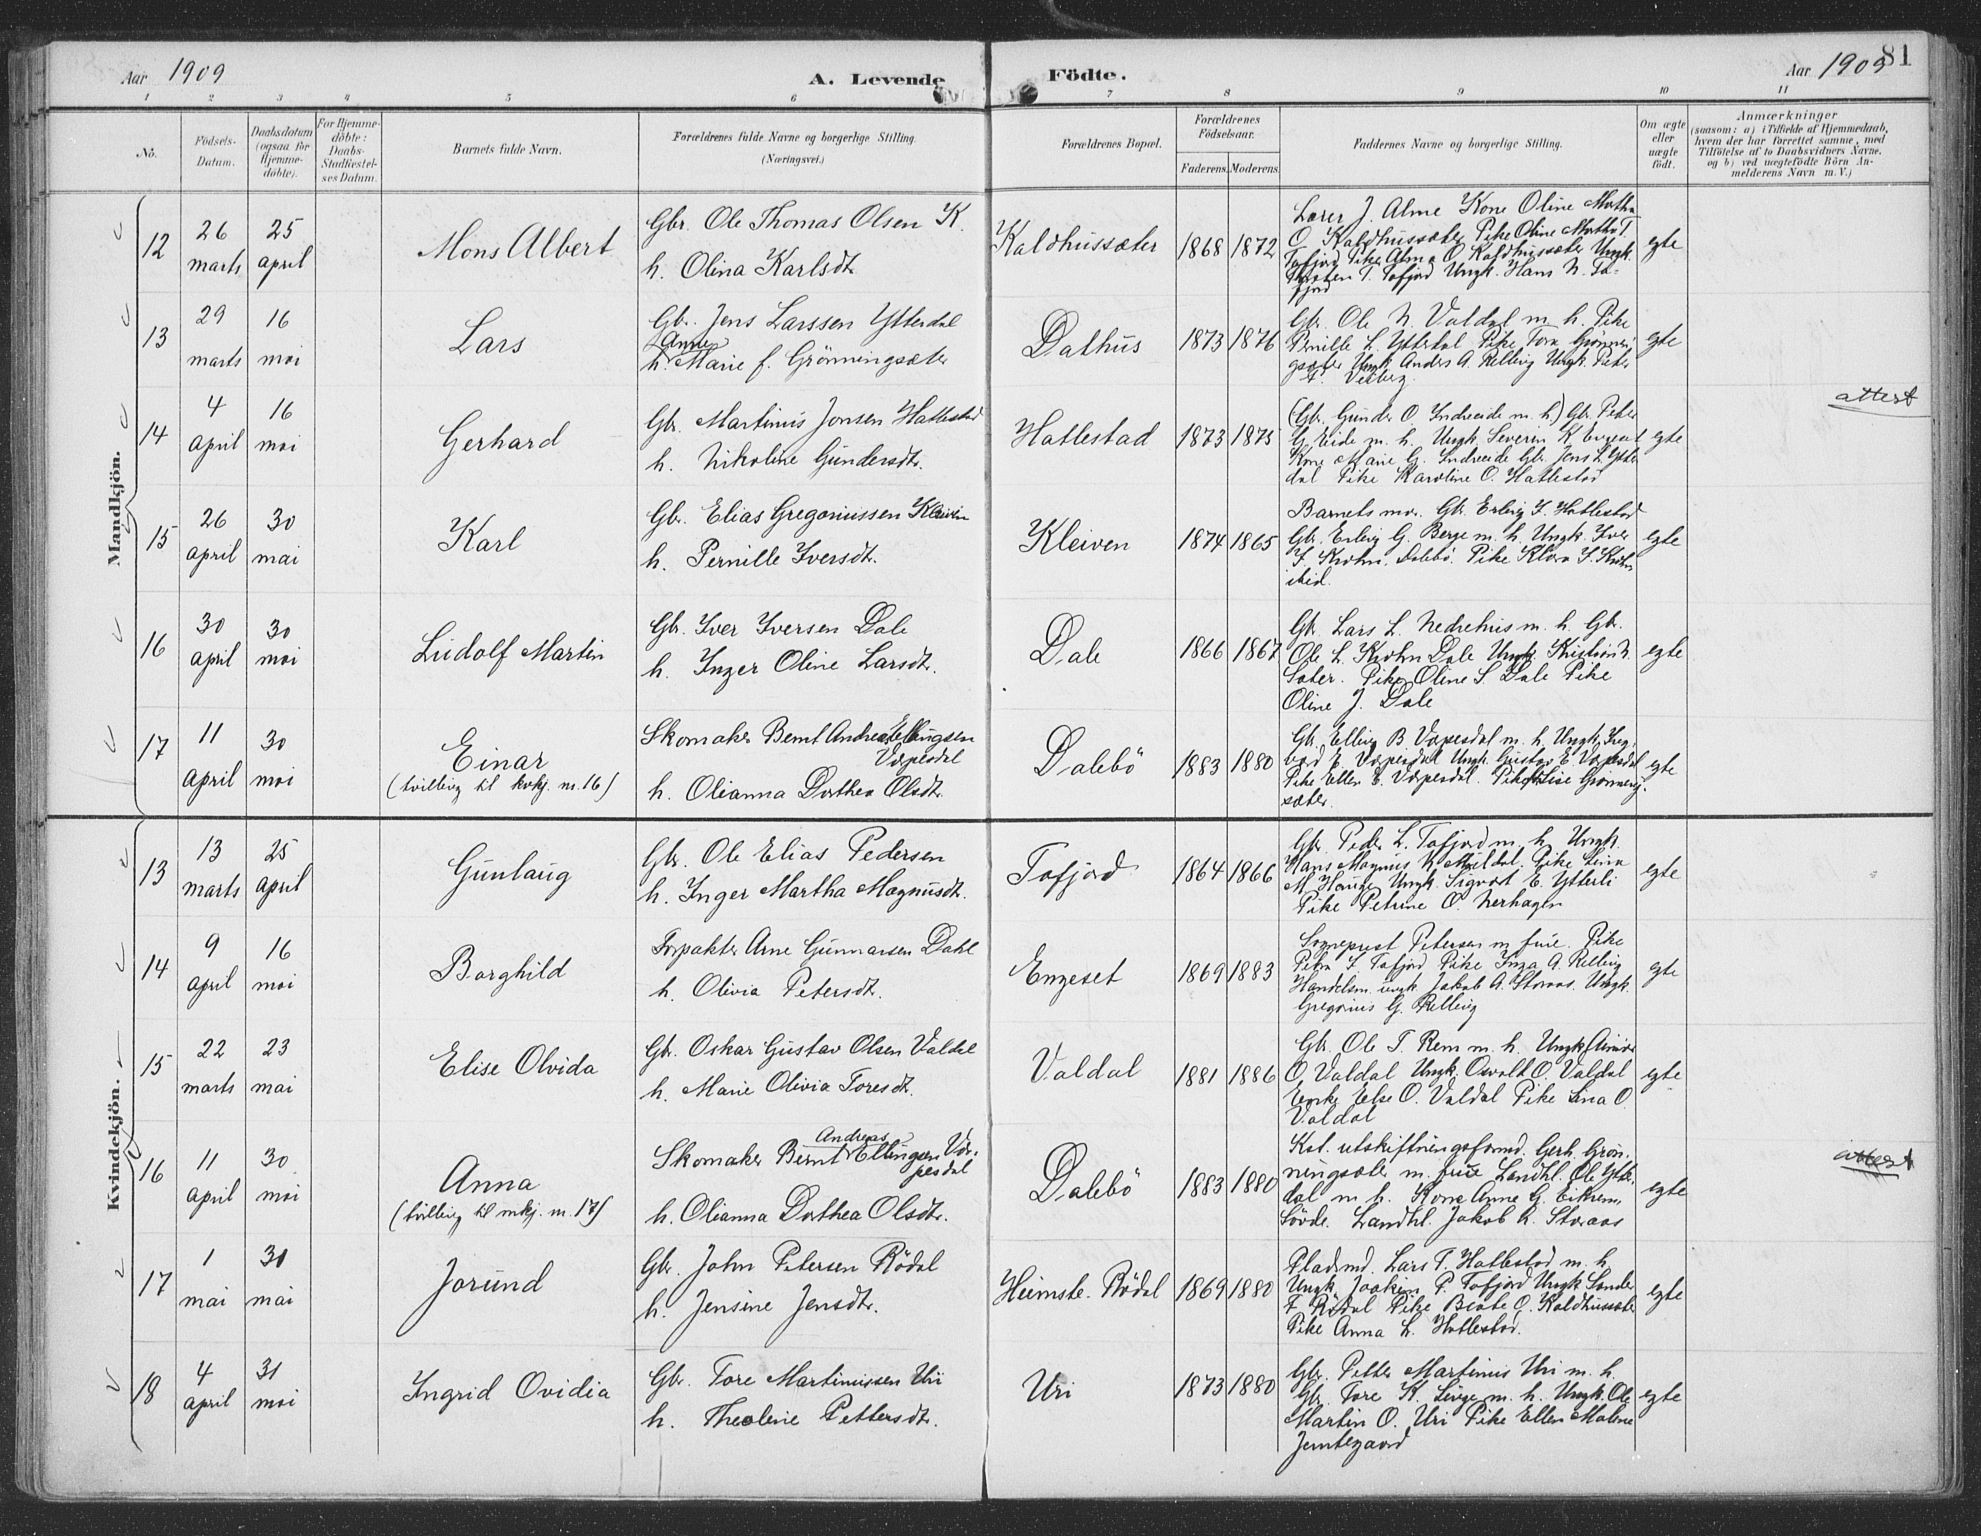 Aar 1909
A. Levende Födte.
Aar 1909
81
1 2 3 4 5 6 7 8 9 10 11
No.
Födsels-Datum.
Daabsdatum (ogsaa for Hjemme-döbte).
For Hjemme-döbte: Daabs-Stadfæstel-ses Datum.
Barnets fulde Navn.
Forældrenes fulde Navne og borgerlige Stilling.
(Næringsvei.)
Forældrenes Bopæl.
Forældrenes Födselsaar.
Faderens. Moderens.
Faddernes Navne og borgerlige Stilling.
Om ægte eller uægte födt.
Anmærkninger
(saasom: a) i Tilfælde af Hjemmedaab, hvem der har forrettet samme, med Tilföielse af to Daabsvidners Navne, og b) ved uægtefödte Börn An-melderens Navn m. V.)
Mandkjön.
12 26 marts 25 april Mons Albert
Gbr. Ole Thomas Olsen K.
h. Olina Karlsdt.
Kaldhussæter 1868 1872
Lærer J. Alme Kone Oline Martha
O. Kaldhussæter Pike Oline Martha T.
Tafjord Pike Alma O. Kaldhussæter Ungk.
T. Tafjord Ungk. Hans N. Ta-
fjord
egte
13 29 marts 16 mai Lars
Gbr. Jens Larssen Ytterdal
h. Anne Marie f. Grönningsæter
Dalhus 1873 1876
Gbr. Ole N. Valdal m. h. Pike
Pernille L. Ytterdal Pike Tora Grönnin-
gsæter Ungk. Anders A. Relling Ungk. Peter
egte
14 4 april 16 mai Gerhard
Gbr. Martinus Jonsen Hatlestad
h. Nikoline Gundersdt.
Hatlestad 1873 1875
(Gbr. Gunder O. Indreeide m. h.) Gbr. Peter
G. Eide m. h. Ungk. Severin K.
Kone Marie G. Indreeide Gbr. Jens L. Ytter-
dal Pike Karoline O. Hatlestad
egte
attest
15 26 april 30 mai Karl
Gbr. Elias Gregoriussen Kleiven
h. Pernille Iversdt.
Kleiven 1874 1865
Barnets mor. Gbr. Erling I. Hatlestad
Gbr. Erling G. Berge m. h. Ungk. Iver
I. Krohn, Dalebö. Pike Klara I. Krohn
ibid.
egte
16 30 april 30 mai Ludolf Martin
Gbr. Iver Iversen Dale
h. Inger Oline Larsdt.
Dale 1866 1867
Gbr. Lars L. Nedrehus m. h. Gbr.
Ole L. Krohn Dale Ungk. Kristian N.
Sæter. Pike Oline S. Dale Pike
Oline J. Dale
egte
17 11 april 30 mai Einar
(tvilling til kvkj. nr. 16)
Skomaker Bernt Andreas Ellingsen
Værpesdal
h. Olianna Dorthea Olsdt.
Dalebö 1883 1880
Gbr. Elling B. Værpesdal m. h. Ungk. Ing-
vard E. Værpesdal Ungk. Gustav E. Værpesdal
Pike Ellen E. Værpesdal. Pike Elise Grönning-
sæter.
egte
Kvindekjön.
13 13 marts 25 april Gunlaug
Gbr. Ole Elias Pedersen
h. Inger Martha Magnusdt.
Tafjord 1864 1866
Gbr. Peder L. Tafjord m. h. Ungk.
Hans Magnus K. Myldal. Pike Lina
M. Hauge Ungk. Sigvart E. Ytterli
Pike Petrine O. Nerhagen
egte
14 9 april 16 mai Borghild
Forpakter Arne Gunnarsen Dahl
h. Olivia Petersdt.
Engeset 1869 1883
Sogneprest Petersen m frue. Pike
Petra I. Tafjord Pike Inga A. Relling
Handelsm. ungk. Jakob A. Storaas. Ungk.
Gregorius G. Relling
egte
15 22 marts 23 mai Elise Olvida
Gbr. Oskar Gustav Olsen Valdal
h. Marie Olivia Toresdt.
Valdal 1881 1886
Gbr. Ole T. Rem m. h. Ungk. Einar
O. Valdal Ungk. Osvald O. Valdal
Enke Else O. Valdal Pike Lina O.
Valdal
egte
16 11 april 30 mai Anna
(tvilling til mkj. nr. 17)
Skomaker Bernt Andreas Ellingsen Vær-
pesdal
h. Olianna Dorthea Olsdt.
Dalebö 1883 1880
Kst. utskiftningsformd. Gerh. Grön-
ningsæter m. frue Landhl. Ole Ytter-
dal m. h. Kone Anne G. Eikrem,
Sövde. Landhl. Jakob A. Storaas
egte
attest
17 1 mai 30 mai Jorund
Gbr. John Petersen Rödal
h. Jensine Jensdt.
Heimste. Rödal 1869 1880
Pladsmd. Lars T. Hatlestad m. h.
Ungk. Joakim P. Tafjord Ungk. Sander
F. Rödal Pike Beate O. Kaldhussæter
Pike Anna L. Hatlestad.
egte
18 4 april 31 mai Ingrid Ovidia
Gbr. Tore Martinussen Uri
h. Theoline Pettersdt.
Uri 1873 1880
Gbr. Petter Martinus Uri m. h.
Gbr. Tore K. Linge m. h. Ungk. Ole
Martin O. Uri Pike Ellen Malene
Jemtegaard
egte